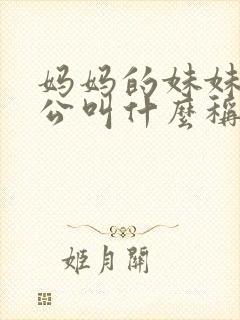 妈妈的妹妹
公叫什麼稱
姬月開